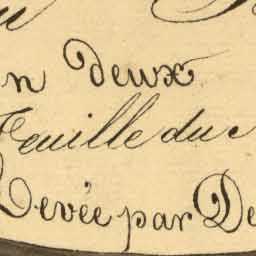 n deux
Feuille du
Levée par De